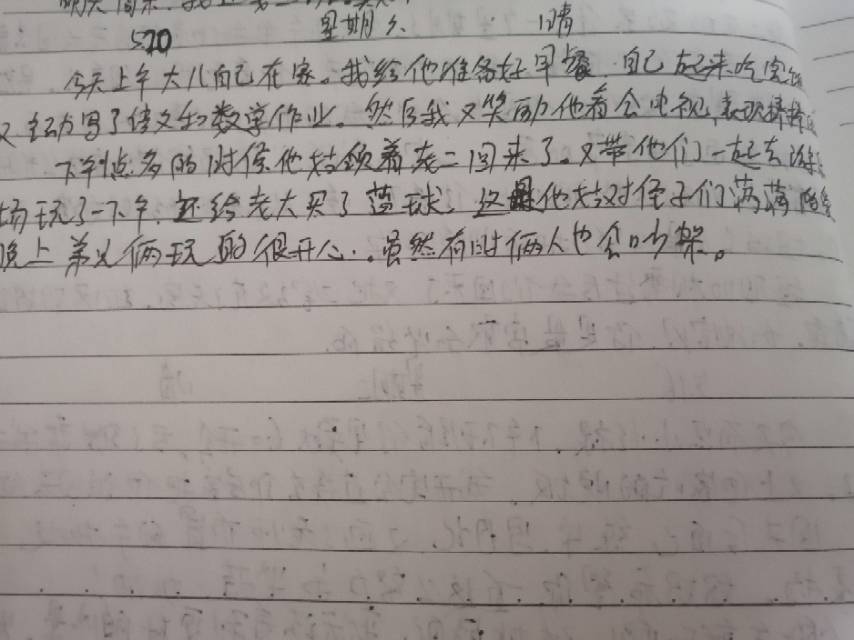 明天周末
5.20 星期六 晴
今天上午大儿自己在家。我给他准备好早餐,自己起来吃完
又主动写了语文和数学作业。然后我又奖励他看会电视,表现棒棒
下午1点多的时候他姑领着老二回来了。又带他们一起去游乐
场玩了一下午,还给老大买了蓝球,这是他姑对侄子们满满
晚上弟兄俩玩的很开心。虽然有时俩人也会吵架。